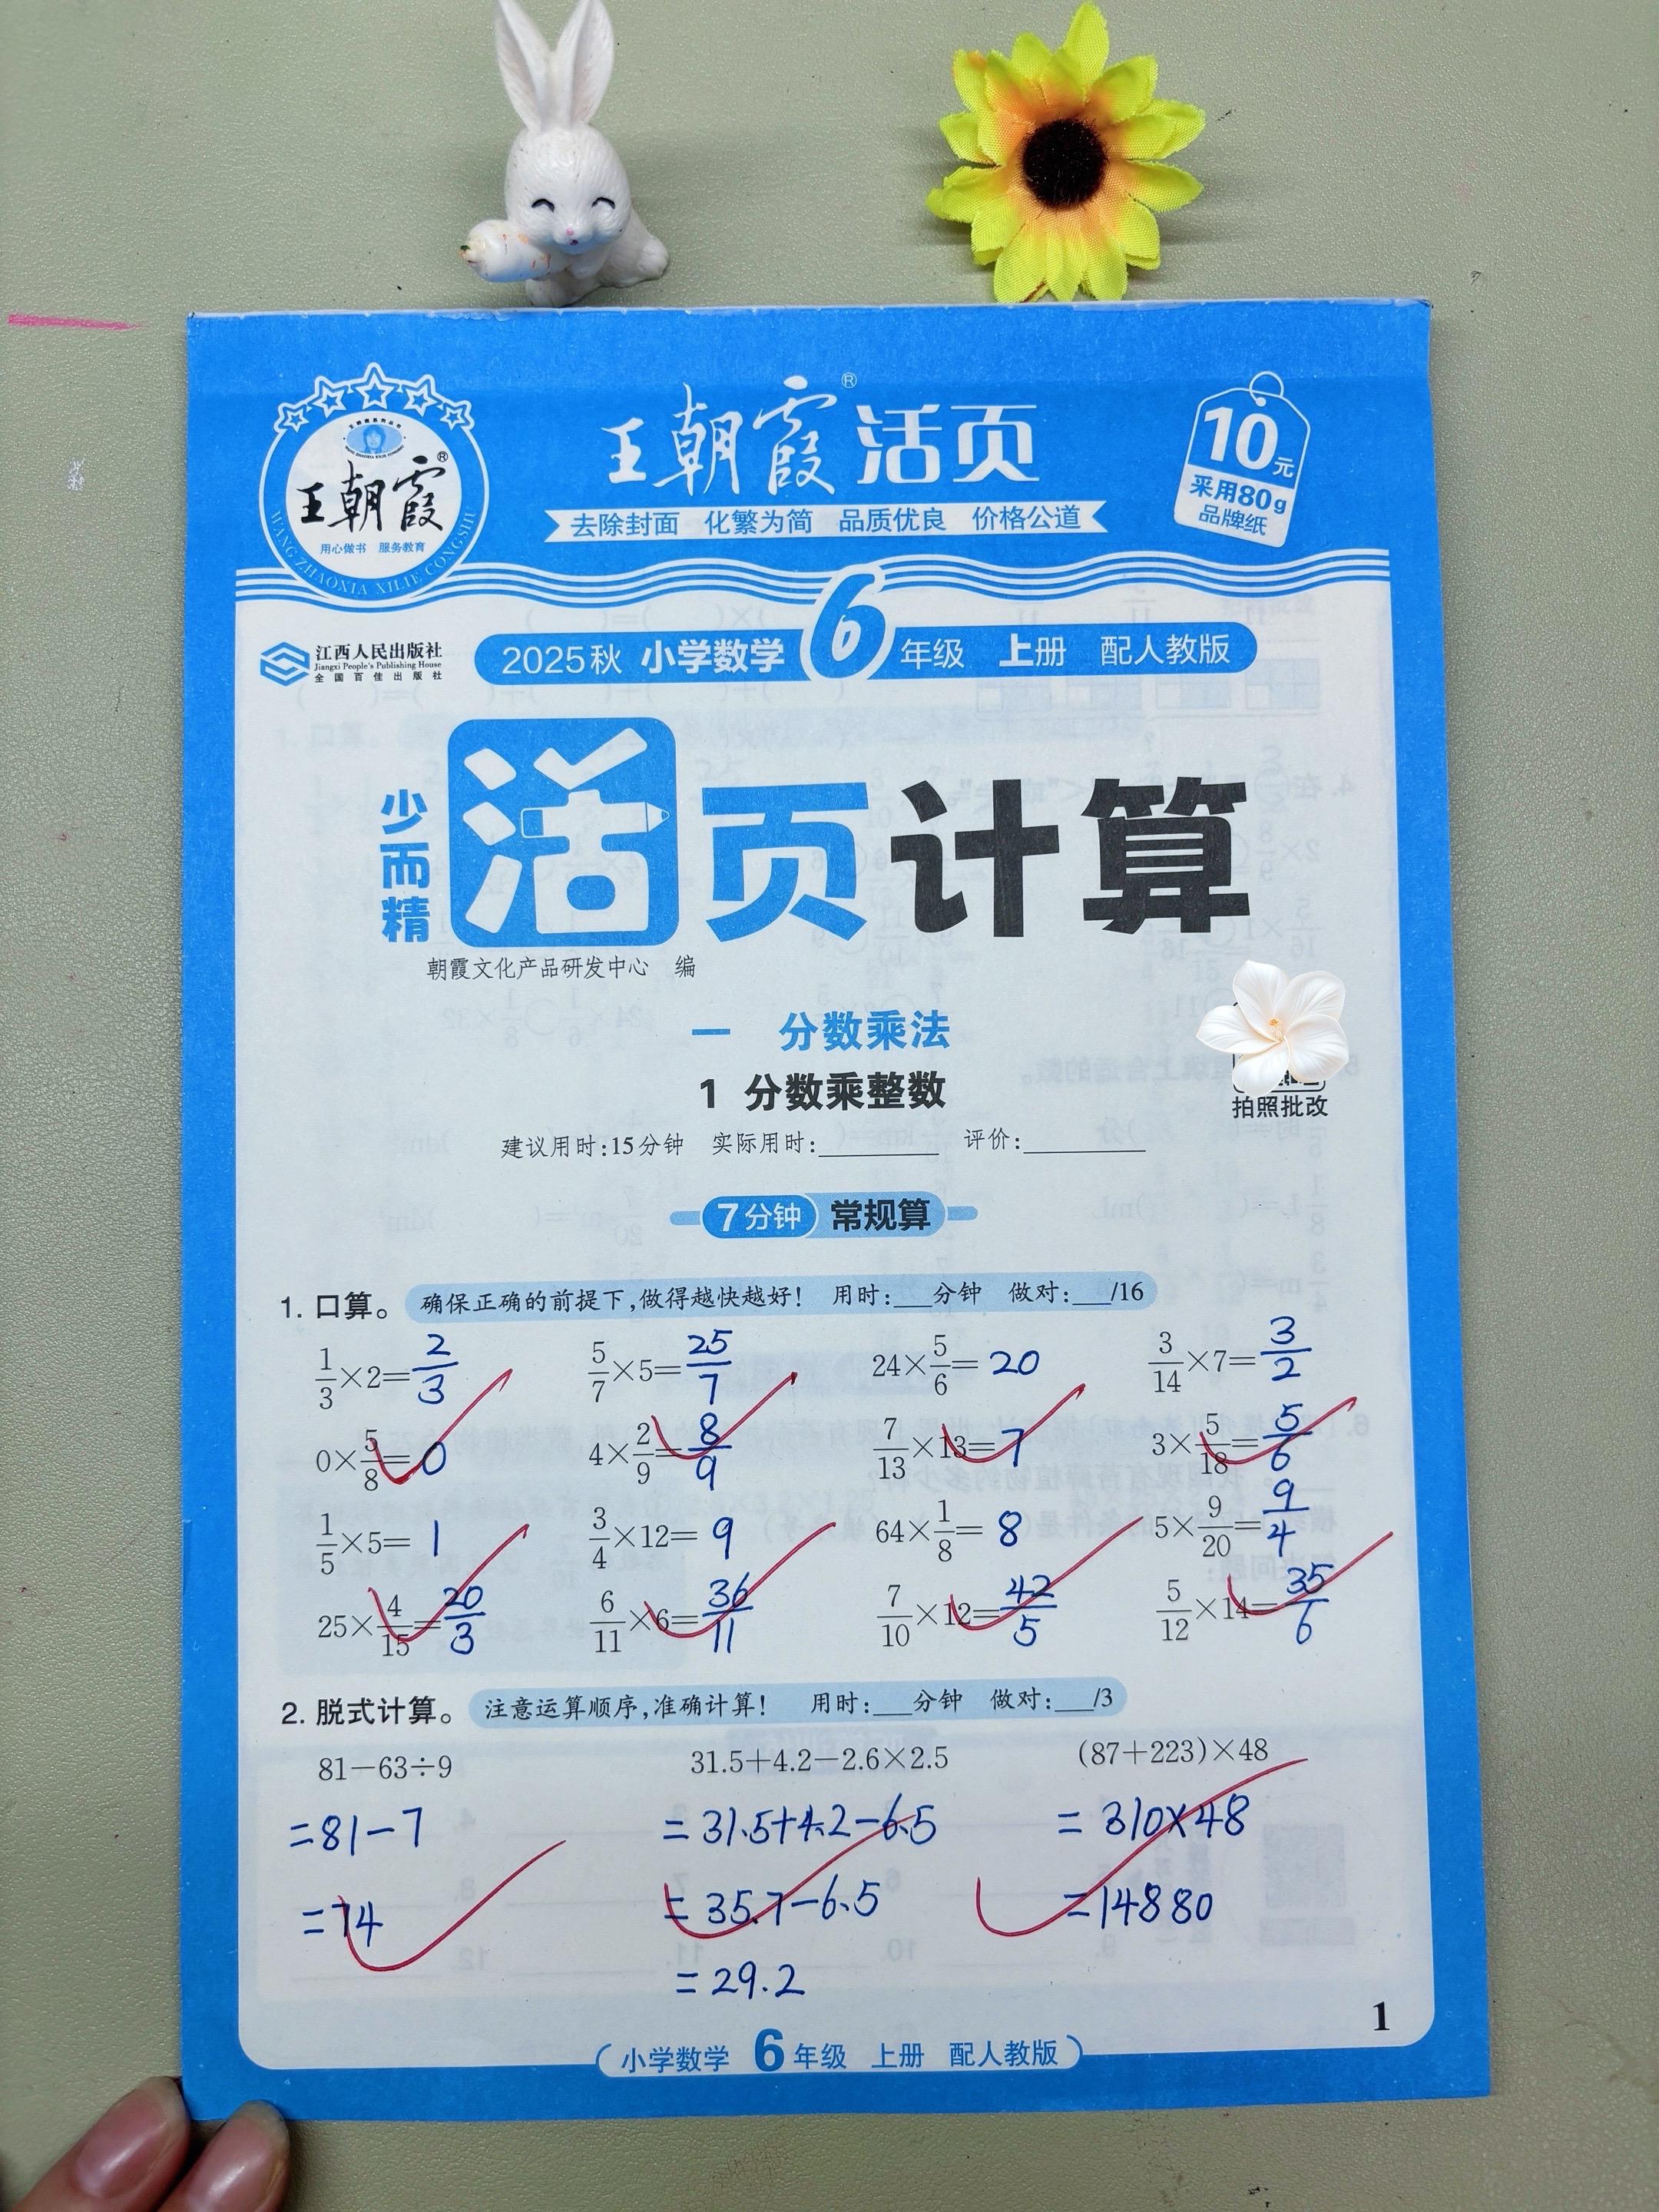 王朝霞®
用心做书 服务教育
WANG ZHAOXIA XILIE CONGSHU
王朝霞®活页
去除封面 化繁为简 品质优良 价格公道
10元
采用80g
品牌纸
江西人民出版社
Jiangxi People's Publishing House
全国百佳出版社
2025秋 小学数学 6年级 上册 配人教版
少而精
活页计算
朝霞文化产品研发中心 编
一 分数乘法
1 分数乘整数
拍照批改
建议用时:15分钟 实际用时:________ 评价:________
7分钟 常规算
1. 口算。 确保正确的前提下,做得越快越好! 用时:___分钟 做对:___/16
1/3×2=2/3 5/7×5=25/7 24×5/6=20 3/14×7=3/2
0×5/8=0 4×2/9=8/9 7/13×13=7 3×5/18=5/6
1/5×5=1 3/4×12=9 64×1/8=8 5×9/20=9/4
25×4/15=20/3 6/11×6=36/11 7/10×12=42/5 5/12×14=35/6
2. 脱式计算。 注意运算顺序,准确计算! 用时:___分钟 做对:___/3
81-63÷9 31.5+4.2-2.6×2.5 (87+223)×48
=81-7 =31.5+4.2-6.5 =310×48
=74 =35.7-6.5 =14880
=29.2
1
小学数学 6年级 上册 配人教版